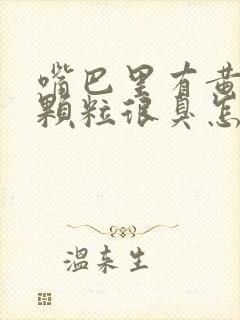 嘴巴里有黄
颗粒很臭怎
温来生